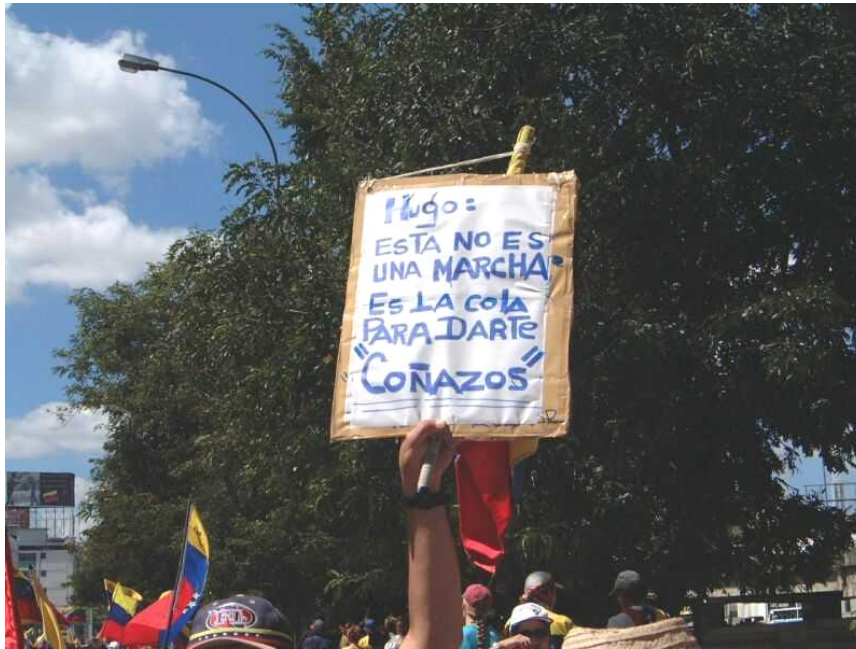 Hugo:
ESTA NO ES
UNA MARCHA
ES LA COLA
PARA DARTE
"COÑAZOS"